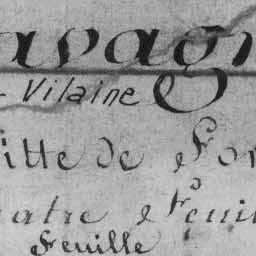 avagn
- Vilaine
itte de For
atre Feuil
Feuille